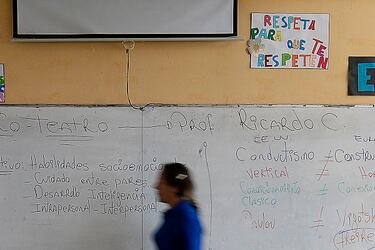 RESPETA
PARA
QUE TE
RESPETEN
E
CO-TEATRO PROF RICARDO C
EE UU EURO
TIVO: HABILIDADES SOCIOEMOCIO
- CUIDADO ENTRE PARES
- DESARROLLO INTELIGENCIA
INTRAPERSONAL - INTERPERSONAL
CONDUCTISMO ≠ CONSTRU
VERTICAL ≠ HO
CLÁSICO
PAVLOV ≠ VYGOTS